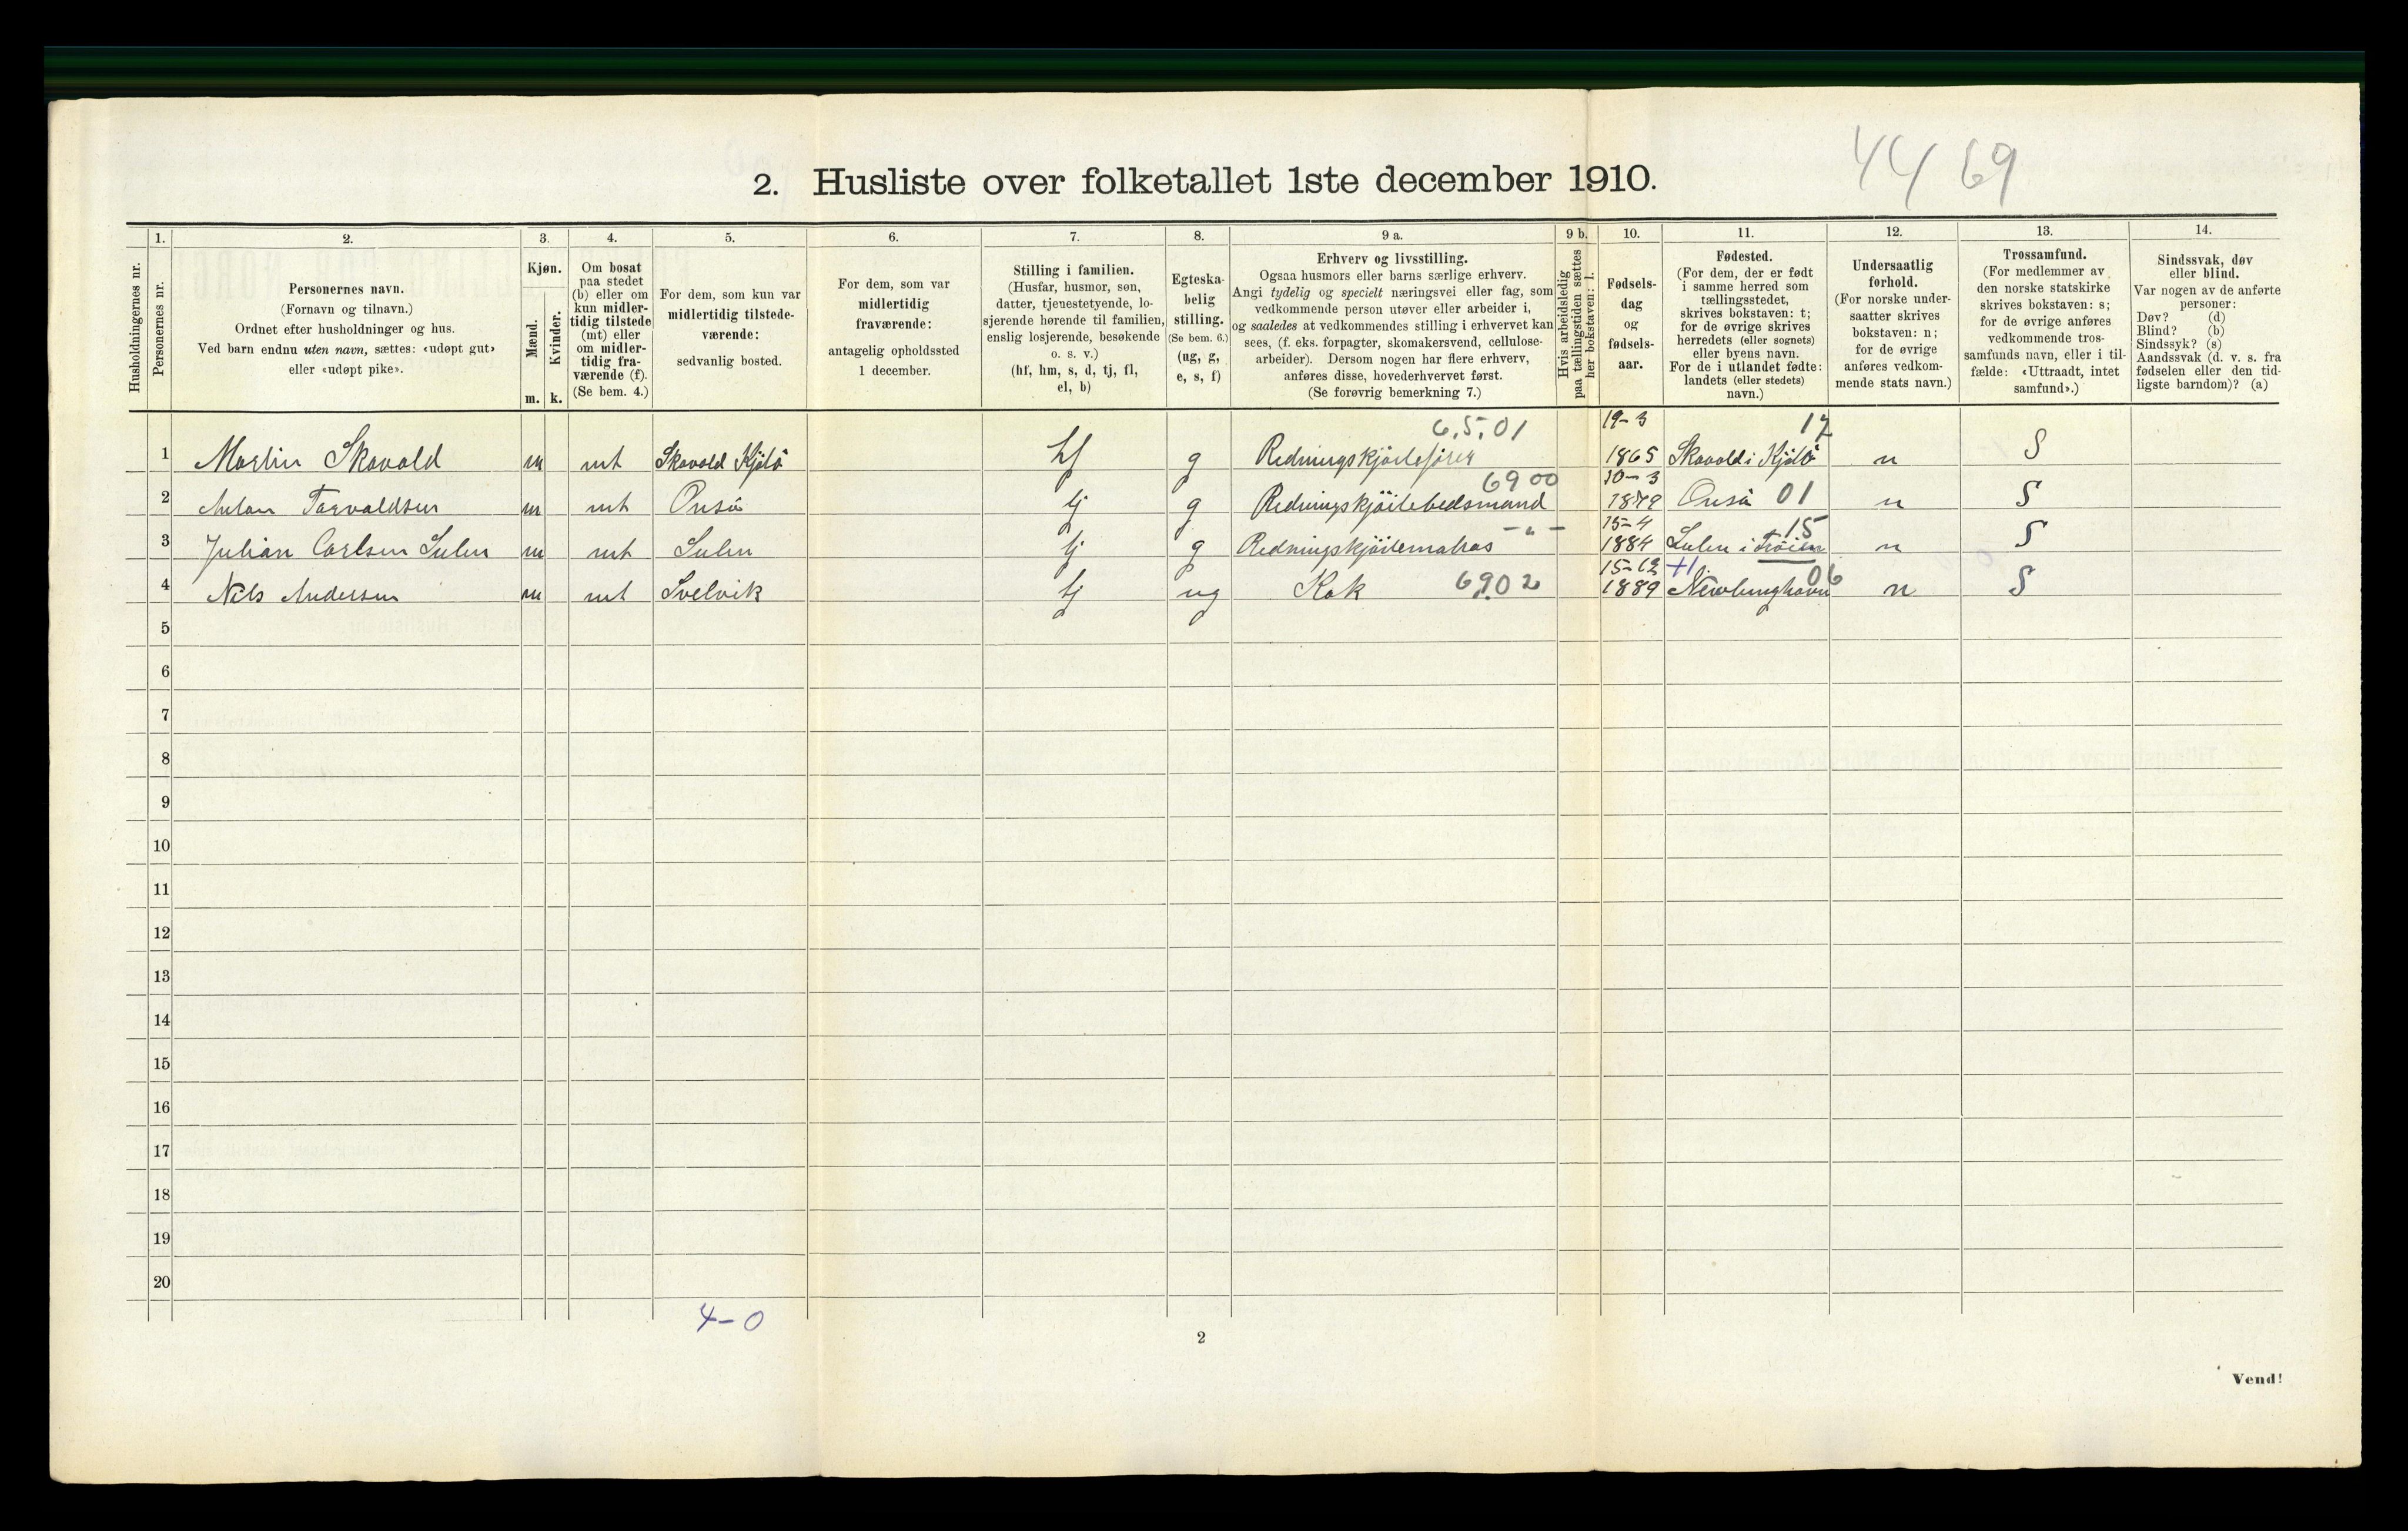 44 69
2. Husliste over folketallet 1ste december 1910.
Husholdningernes nr.
1.
Personernes nr.
2.
Personernes navn.
(Fornavn og tilnavn.)
Ordnet efter husholdninger og hus.
Ved barn endnu uten navn, sættes: «udøpt gut»
eller «udøpt pike».
3.
Kjøn.
Mænd.
Kvinder.
m. k.
4.
Om bosat
paa stedet
(b) eller om
kun midler-
tidig tilstede
(mt) eller
om midler-
tidig fra-
værende (f).
(Se bem. 4.)
5.
For dem, som kun var
midlertidig tilstede-
værende:
sedvanlig bosted.
6.
For dem, som var
midlertidig
fraværende:
antagelig opholdssted
1 december.
7.
Stilling i familien.
(Husfar, husmor, søn,
datter, tjenestetyende, lo-
sjerende hørende til familien,
enslig losjerende, besøkende
o. s. v.)
(hf, hm, s, d, tj, fl,
el, b)
8.
Egteska-
belig
stilling.
(Se bem. 6.)
(ug, g,
e, s, f)
9 a.
Erhverv og livsstilling.
Ogsaa husmors eller barns særlige erhverv.
Angi tydelig og specielt næringsvei eller fag, som
vedkommende person utøver eller arbeider i,
og saaledes at vedkommendes stilling i erhvervet kan
sees, (f. eks. forpagter, skomakersvend, cellulose-
arbeider). Dersom nogen har flere erhverv,
anføres disse, hovederhvervet først.
(Se forøvrig bemerkning 7.)
9 b.
Hvis arbeidsledig
paa tællingstiden sættes
her bokstaven: l.
10.
Fødsels-
dag
og
fødsels-
aar.
11.
Fødested.
(For dem, der er født
i samme herred som
tællingsstedet,
skrives bokstaven: t;
for de øvrige skrives
herredets (eller sognets)
eller byens navn.
For de i utlandet fødte:
landets (eller stedets)
navn.)
12.
Undersaatlig
forhold.
(For norske under-
saatter skrives
bokstaven: n;
for de øvrige
anføres vedkom-
mende stats navn.)
13.
Trossamfund.
(For medlemmer av
den norske statskirke
skrives bokstaven: s;
for de øvrige anføres
vedkommende tros-
samfunds navn, eller i til-
fælde: «Uttraadt, intet
samfund».)
14.
Sindssvak, døv
eller blind.
Var nogen av de anførte
personer:
Døv? (d)
Blind? (b)
Sindssyk? (s)
Aandssvak (d. v. s. fra
fødselen eller den tid-
ligste barndom)? (a)
6.5.01 19-3 17
1 Martin Skavold m mt Skavold Kjölö hf g Redningskjöitefører 1865 Skavold i Kjölö n S
6900 10-3
2 Anton Torvaldsen m mt Onsö tj g Redningskjöitebedsmand 1879 Onsö 01 n S
-"- 15-4 15
3 Julian Carlsen Sulen m mt Sulen tj g Redningskjöitematros 1884 Sulen i n S
15-12 +1 06
4 Nils Andersen m mt Svelvik tj ug Kok 6902 1889 n S
5
6
7
8
9
10
11
12
13
14
15
16
17
18
19
20
4-0
2
Vend!